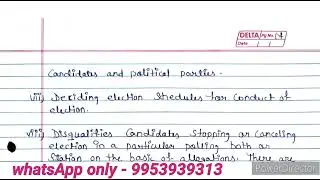 DELTA Pg No.
Date / /
Candidates and political parties.
vii) Deciding election Shedules for Conduct of
election.
viii) Disqualities Candidates stopping or canceling
election in a particular polling both or
Station on the basic of allegations. There are
whatsApp only - 9953939313
PowerDirector